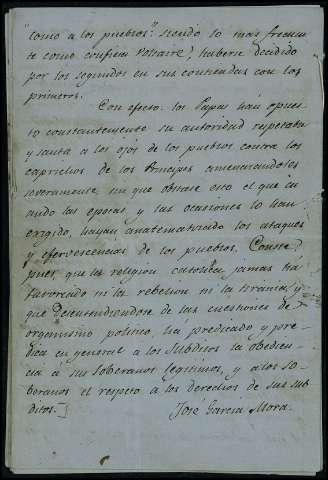 "como a los pueblos": siendo lo mas frecuen
te como confiesa Voltaire, haberse decidido
por los segundos en sus contiendas con los
primeros.
Con efecto: los Papas han opues
to constantemente su autoridad respetada
y santa a los ojos de los pueblos contra los
caprichos de los Principes amenazandoles
severamente sin que obstase esto el que cu
ando las epocas y las ocasiones lo han
exigido, hayan anatematizado los ataques
y efervescencias de los pueblos. Conste,
pues, que la religion catolica jamas ha
favorecido ni la rebelion ni la tirania, y
que desentendiendose de las cuestiones de
organismo politico, ha predicado y pre
dica en general a los subditos la obedien
cia a sus soberanos legitimos, y a los so
beranos el respeto a los derechos de sus sub
ditos.
José Garcia Mora.